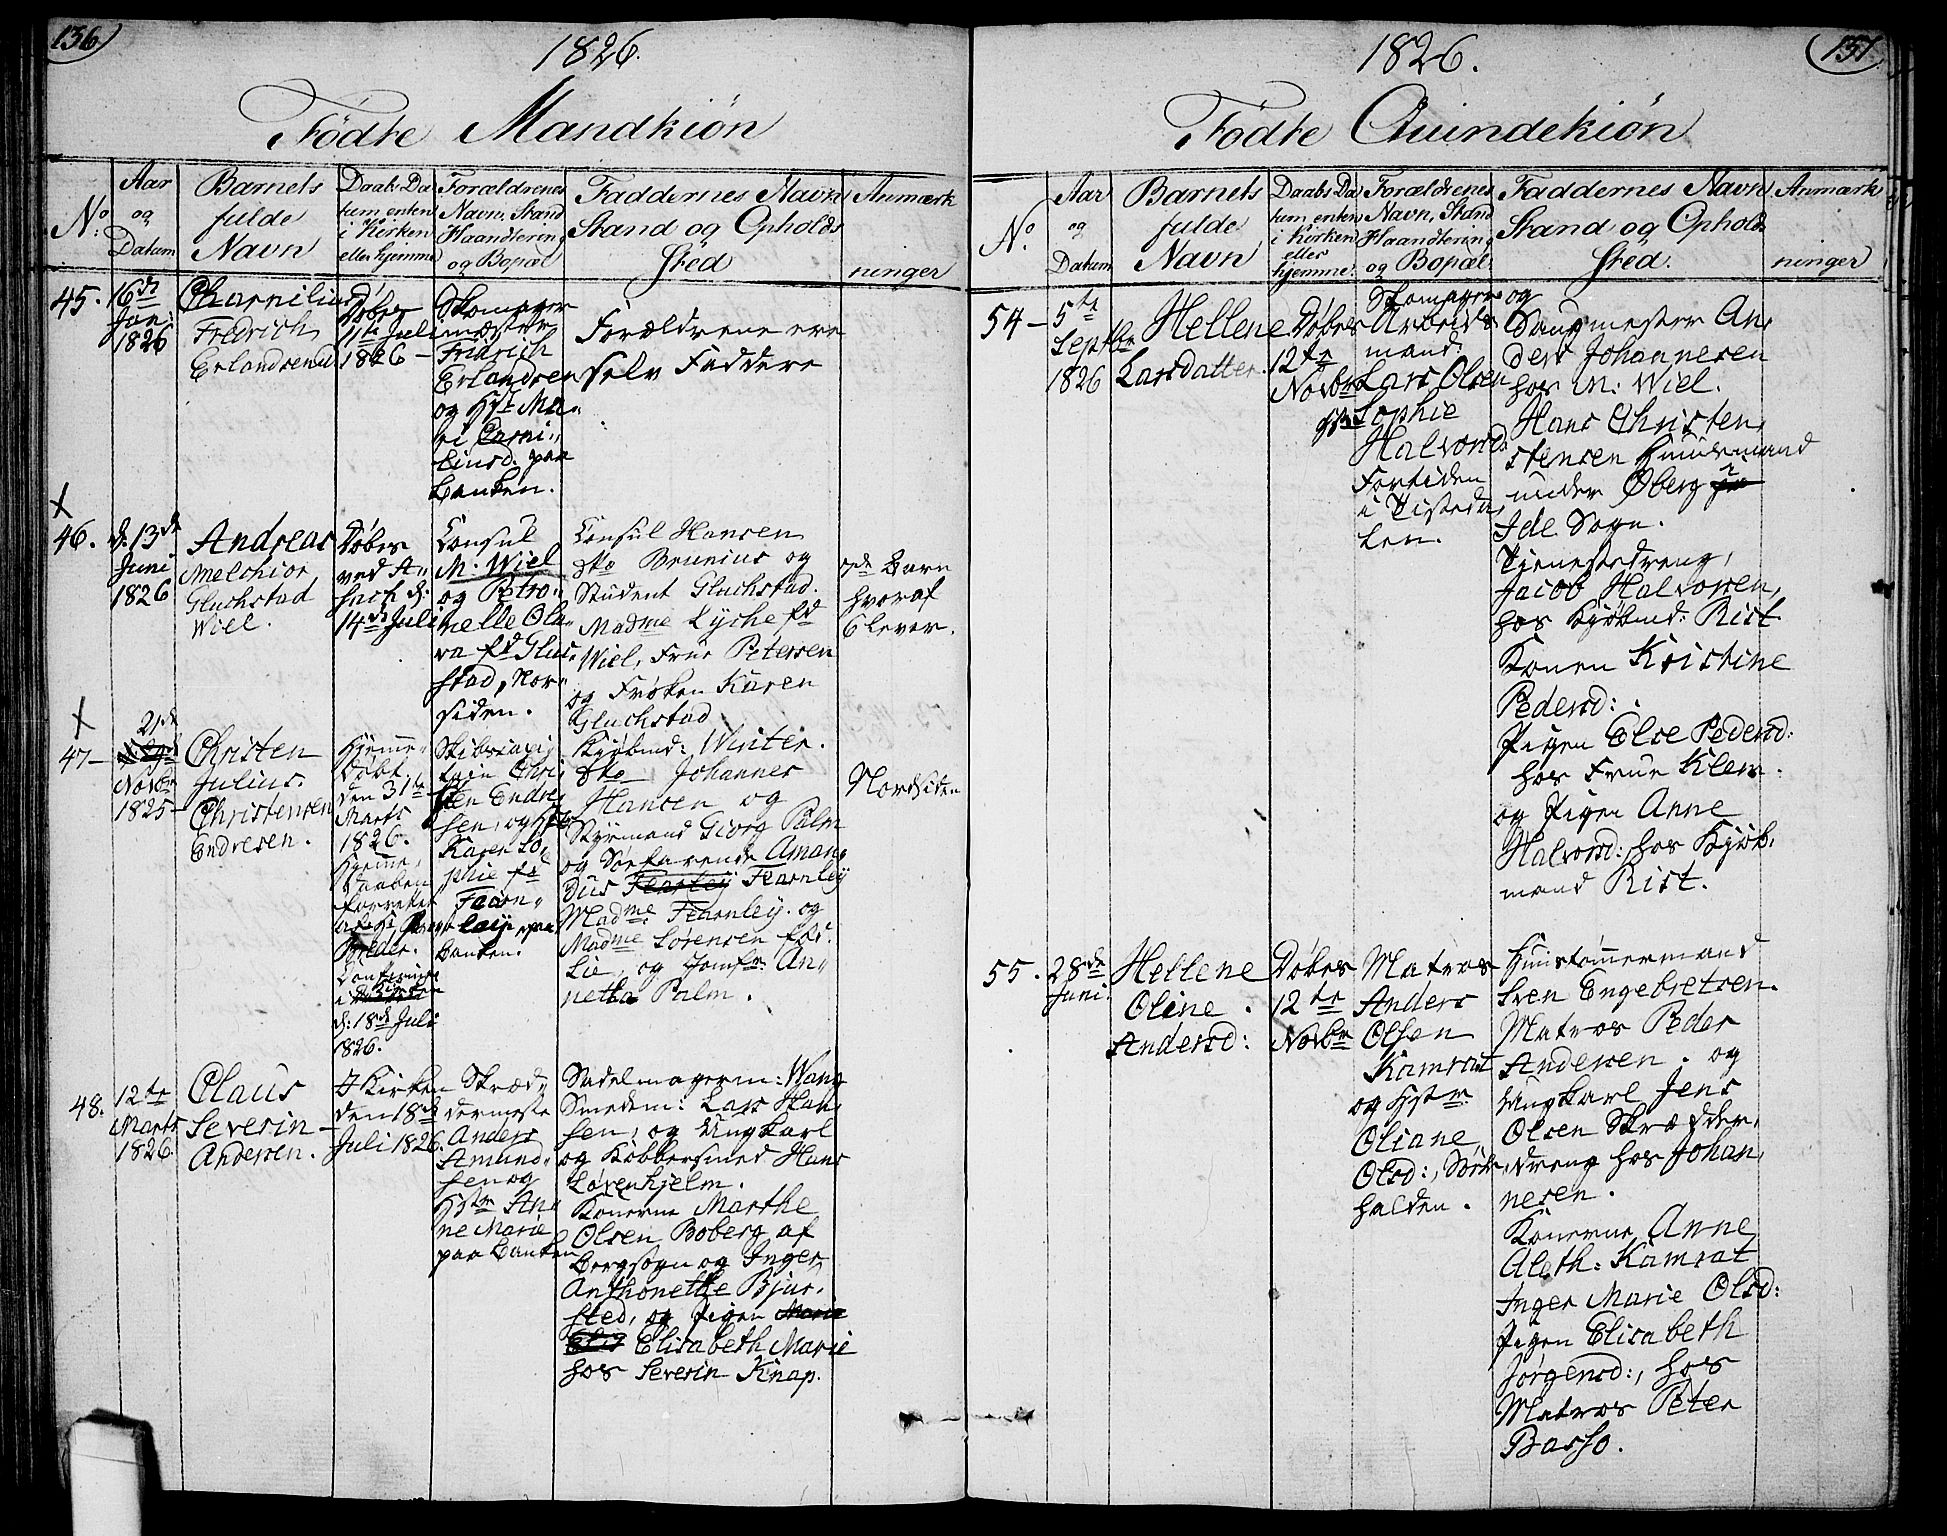 136
1826.
Födte Mandkiön
No.
Aar
og
Datum
Barnets
fulde
Navn
Daabs Da
tum, enten
i Kirken
eller hjemme
Forældrenes
Navn, Stand
Haandtering
og Bopæl
Faddernes Navn
Stand og Opholds
Sted
Anmærk
ninger
45.
16de
Jan:
1826
Fredrich
Erlandsen
Döbes
11te Juli
1826 –
Skomager
mester
Fridrich
Erlandsen
og Hst. Ma-
ri Carni-
liusd. paa
Banken.
Forældrene ere
selv Faddere
X
46.
d. 13de
Juni
1826
Andreas
Melchior
Gluchstad
Wiel.
Döbes
ved A-
sach d:
14de Juli
Consul
M: Wiel
og Petro-
nelle Ola-
va fd Gluc-
stad, Nor-
siden.
Consul Hansen
Do Brunius og
Student Gluchstad.
Madme Lyche fd
Wiel, Frue Petersen
og Fröken Karen
Gluchstad
7de Barn
hvoraf
6 lever.
X
47–
21de
Novbr
1825–
Christen
Julius.
Christensen
Endresen.
Hjemme-
döbt
den 31te
Marts
1826.
Hjemme-
daaben
forrettet
af
i Kirken
d: 18de Juli
1826.
Skibscapi-
tain Chri
sten Endre-
sen, og Hst
Karen So-
phie fd
Fearn-
leij, paa
Banken.
Kjöbmd: Winter.
Do Johannes
Hansen og
Styrmand Giorg Palm
og Söefarende Aman-
dus Fearnley
Madme. Fearnley. og
Madme Sörensen föd.
Lie, og Jomfr: An-
netta Palm.
Nordsiden
48.
12te
Marts
1826.
Claus
Severin
Andersen.
I Kirken
den 18de
Juli 1826.
Skræd-
dermeste
Anders
Amund-
sen og
Hstr An-
ne Marie
paa Banken
Sadelmagerm: Wang
Smedem: Lars Han-
sen, og Ungkarl
og Kobbersmed Hans
Lövenhjelm.
Konerne Marthe
Olsen Boberg af
Bergsogn og Inger
Anthonette Bjur-
sted, og Pigen Marie
Elis Elisabeth Marie
hos Severin Knap.
137
1826.
Födte Quindekiön
No.
Aar
og
Datum
Barnets
fulde
Navn
Daabs Da
tum, enten
i Kirken
eller
hjemme.
Forældrenes
Navn, Stand
Haandtering
og Bopæl
Faddernes Navn
Stand og Ophold
Sted.
Anmærk
ninger
54–
5te
Septbr
1826
Hellene
Larsdatter.
Döbes
12te
Novbr
Skomager og
Arbeids
mand.
Lars Olsen
Sophie
Halvorsd:
For tiden
i Tistedа-
len.
Saugmester An-
ders Johannesen
hos M: Wiel.
Hans Christen-
stensen Huusmand
under Öberg i
Ide Sogn.
Tjenestedreng,
Jacob Halvorsen,
hos Kjöbmd: Rist
Konen Kristine
Pedersd:.
Pigen Else Pedersd:
hos Frue Klem.
og Pigen Anne
Halvorsd: hos Kjöb-
mand Rist.
55.
28de
Juni.
Hellene
Oline.
Andersd:
Döbes
12te
Novbr
Matros
Anders
Olsen
Kamrat
og Hstr.
Oliane
Olsd:, Sör-
halden.
Huustömmermand
Sven Engebretsen.
Matros Peder
Andersen. og
Ungkarl Jens
Olsen Skrædder-
dreng hos Johan-
nesen.
Konerne Anne
Aleth: Kamrat
Inger Marie Olsd:
Pigen Elisabeth
Jörgensd:, hos
Matros Peter
Basso.